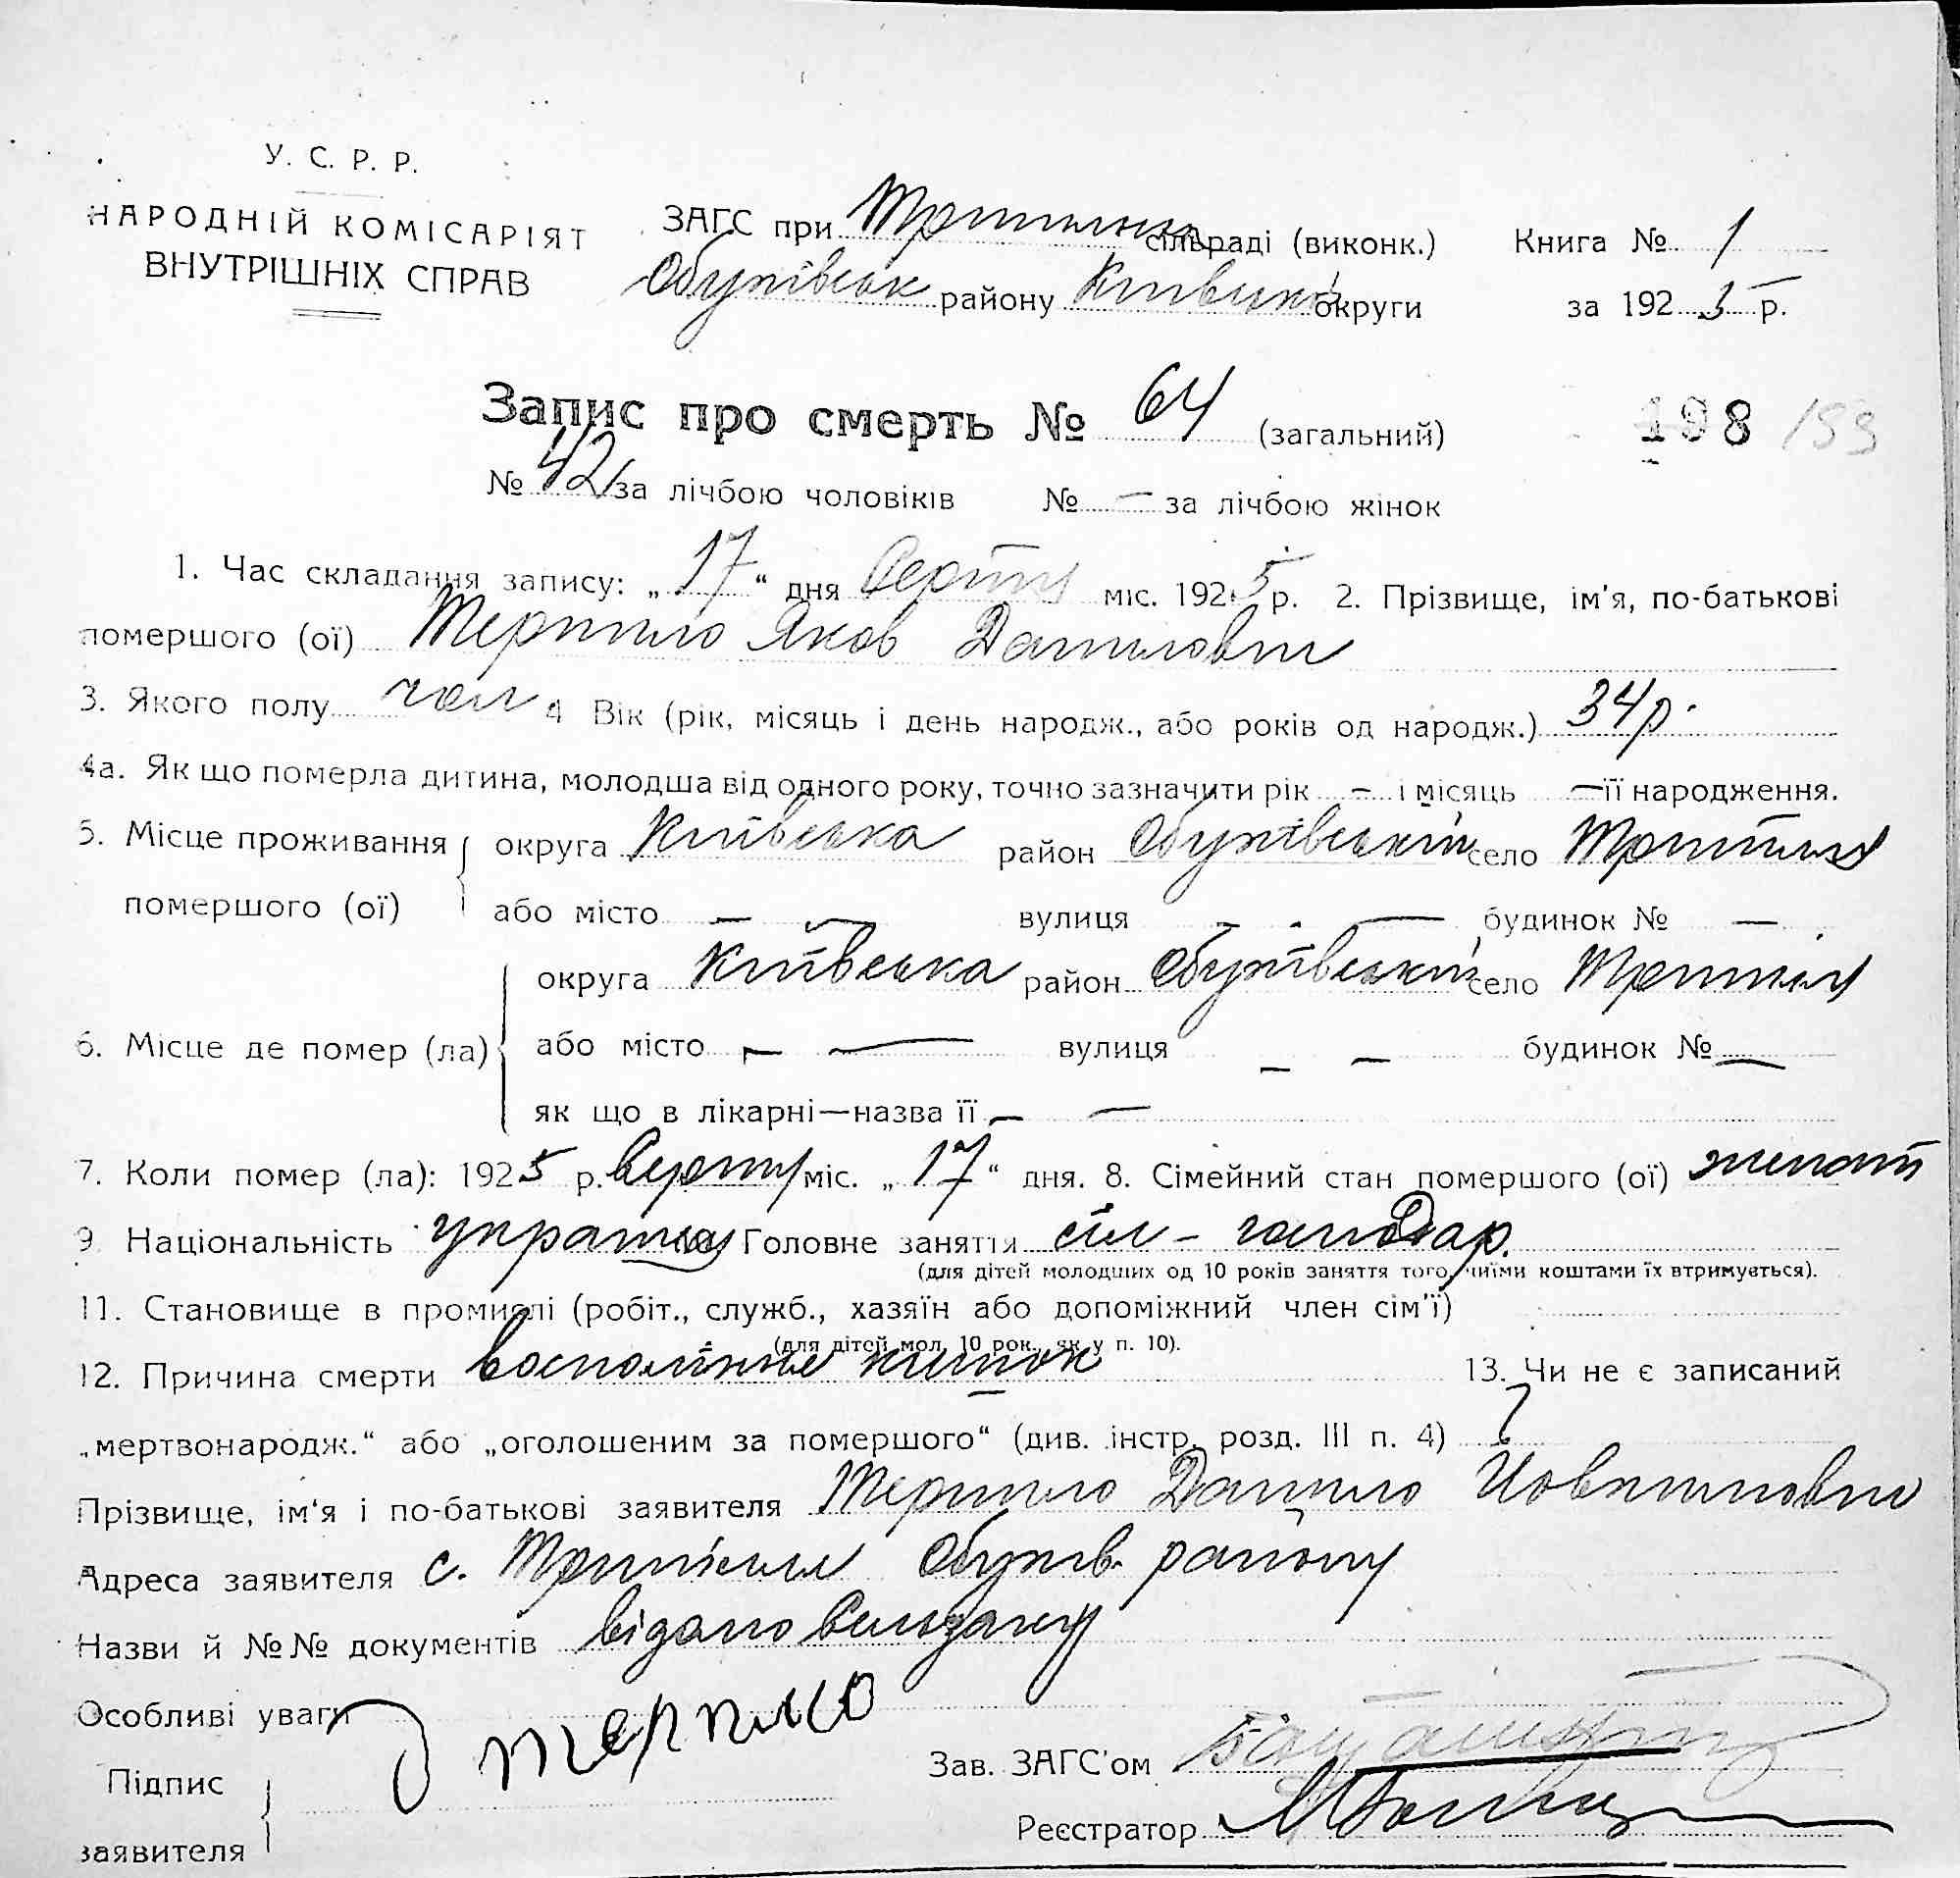 У. С. Р. Р.
НАРОДНІЙ КОМІСАРІЯТ
ВНУТРІШНІХ СПРАВ
ЗАГС при сільраді (виконк.)
Обухівськ району Київської округи
Книга № 1
за 192 5 р.
Запис про смерть № 64 (загальний)
198 153
№ 42 за лічбою чоловіків № — за лічбою жінок
1. Час складання запису: „17“ дня Серпня міс. 1925 р. 2. Прізвище, ім'я, по-батькові
помершого (ої) Терпило Яков Данилович
3. Якого полу чол 4 Вік (рік, місяць і день народж., або років од народж.) 34 р.
4а. Як що померла дитина, молодша від одного року, точно зазначити рік – і місяць — її народження.
5. Місце проживання помершого (ої)
округа Київська район Обухівський село Трипілля
або місто — — вулиця - - — будинок № —
6. Місце де помер (ла)
округа Київська район Обухівський село Трипілля
або місто — — вулиця – – будинок № —
як що в лікарні—назва її — —
7. Коли помер (ла): 1925 р. Серпня міс. „17“ дня. 8. Сімейний стан помершого (ої) женат
9 Національність Головне заняття сіл - господар.
(для дітей молодших од 10 років заняття того, чиїми коштами їх втримується).
11. Становище в промислі (робіт., служб., хазяїн або допоміжний член сім'ї)
(для дітей мол. 10 рок., як у п. 10).
12. Причина смерти кишок 13. Чи не є записаний
„мертвонародж.“ або „оголошеним за помершого“ (див. інстр. розд. III п. 4)
Прізвище, ім'я і по-батькові заявителя Терпило Данило
Адреса заявителя с. Трипілля Обухів. району
Назви й №№ документів видано
Особливі уваги
Підпис
заявителя
Д Терпило
Зав. ЗАГС'ом
Реєстратор